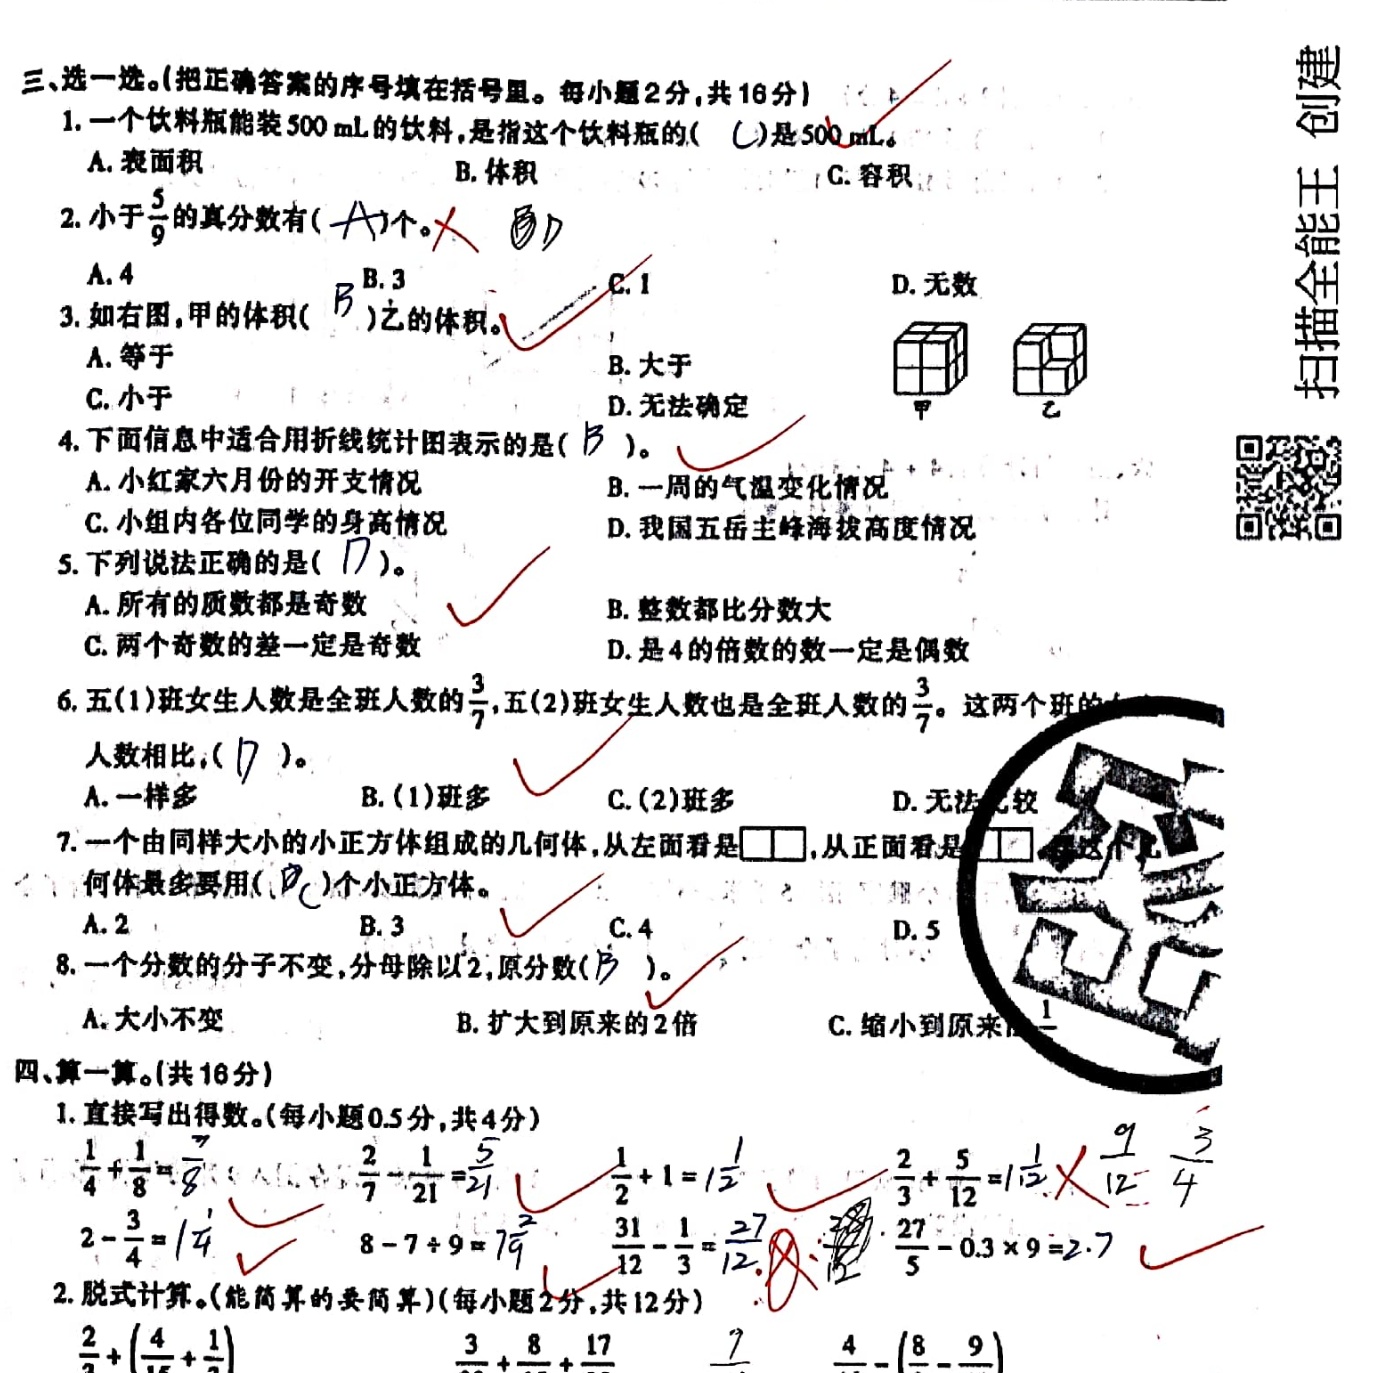 三、选一选。(把正确答案的序号填在括号里。每小题2分,共16分)
1. 一个饮料瓶能装500 mL的饮料,是指这个饮料瓶的( C )是500 mL。
A. 表面积 B. 体积 C. 容积
2. 小于5/9的真分数有( A )个。 D
A. 4 B. 3 C. 1 D. 无数
3. 如右图,甲的体积( B )乙的体积。
A. 等于 B. 大于
C. 小于 D. 无法确定
甲 乙
4. 下面信息中适合用折线统计图表示的是( B )。
A. 小红家六月份的开支情况 B. 一周的气温变化情况
C. 小组内各位同学的身高情况 D. 我国五岳主峰海拔高度情况
5. 下列说法正确的是( D )。
A. 所有的质数都是奇数 B. 整数都比分数大
C. 两个奇数的差一定是奇数 D. 是4的倍数的数一定是偶数
6. 五(1)班女生人数是全班人数的3/7,五(2)班女生人数也是全班人数的3/7。这两个班的
人数相比,( D )。
A. 一样多 B. (1)班多 C. (2)班多 D. 无法 较
7. 一个由同样大小的小正方体组成的几何体,从左面看是□□,从正面看是□□ 这个几
何体最多要用( C )个小正方体。
A. 2 B. 3 C. 4 D. 5
8. 一个分数的分子不变,分母除以2,原分数( B )。
A. 大小不变 B. 扩大到原来的2倍 C. 缩小到原来 1
四、算一算。(共16分)
1. 直接写出得数。(每小题0.5分,共4分)
1/4+1/8= /8 2/7-1/21=5/21 1/2+1=1 1/2 2/3+5/12=1 1/12 9/12 3/4
2-3/4=1 1/4 8-7÷9=7 2/9 31/12-1/3=27/12 27/5-0.3×9=2.7
2. 脱式计算。(能简算的要简算)(每小题2分,共12分)